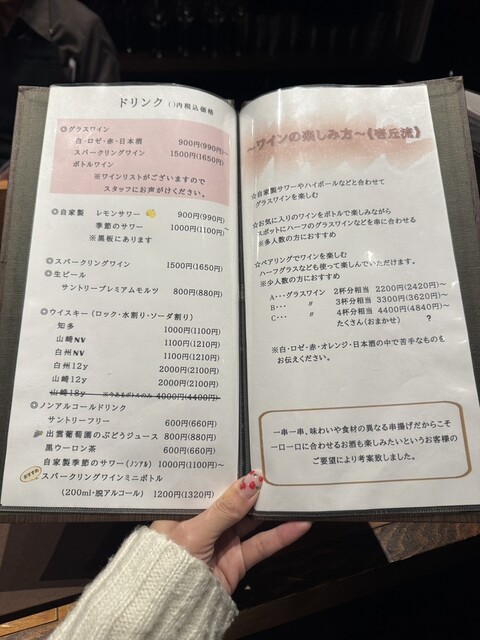 ドリンク ()内税込価格
◎グラスワイン
白・ロゼ・赤・日本酒 900円(990円)～
スパークリングワイン 1500円(1650円)
ボトルワイン
※ワインリストがございますので
スタッフにお声がけください。
◎自家製 レモンサワー 900円(990円)
季節のサワー 1000円(1100円)～
※黒板にあります
◎スパークリングワイン 1500円(1650円)
◎生ビール
サントリープレミアムモルツ 800円(880円)
◎ウイスキー(ロック・水割り・ソーダ割り)
知多 1000円(1100円)
山崎NV 1100円(1210円)
白州NV 1100円(1210円)
白州12y 2000円(2100円)
山崎12y 2000円(2100円)
山崎18y ※今あるボトルのみ 4000円(4400円)
◎ノンアルコールドリンク
サントリーフリー 600円(660円)
出雲葡萄園のぶどうジュース 800円(880円)
黒ウーロン茶 600円(660円)
自家製季節のサワー(ノンアル) 1000円(1100円)～
おすすめ スパークリングワインミニボトル
(200ml・脱アルコール) 1200円(1320円)
～ワインの楽しみ方～《壱丘流》
☆自家製サワーやハイボールなどと合わせて
グラスワインを楽しむ
☆お気に入りのワインをボトルで楽しみながら
スポットにハーフのグラスワインなどを串に合わせる
※多人数の方におすすめ
☆ペアリングでワインを楽しむ
ハーフグラスなども使って楽しんでいただけます。
※少人数の方におすすめ
A・・・グラスワイン 2杯分相当 2200円(2420円)～
B・・・ 〃 3杯分相当 3300円(3620円)～
C・・・ 〃 4杯分相当 4400円(4840円)～
たくさん(おまかせ) ?
※白・ロゼ・赤・オレンジ・日本酒の中で苦手なものを
お伝えください。
一串一串、味わいや食材の異なる串揚げだからこそ
一口一口に合わせるお酒も楽しみたいというお客様の
ご要望により考案致しました。